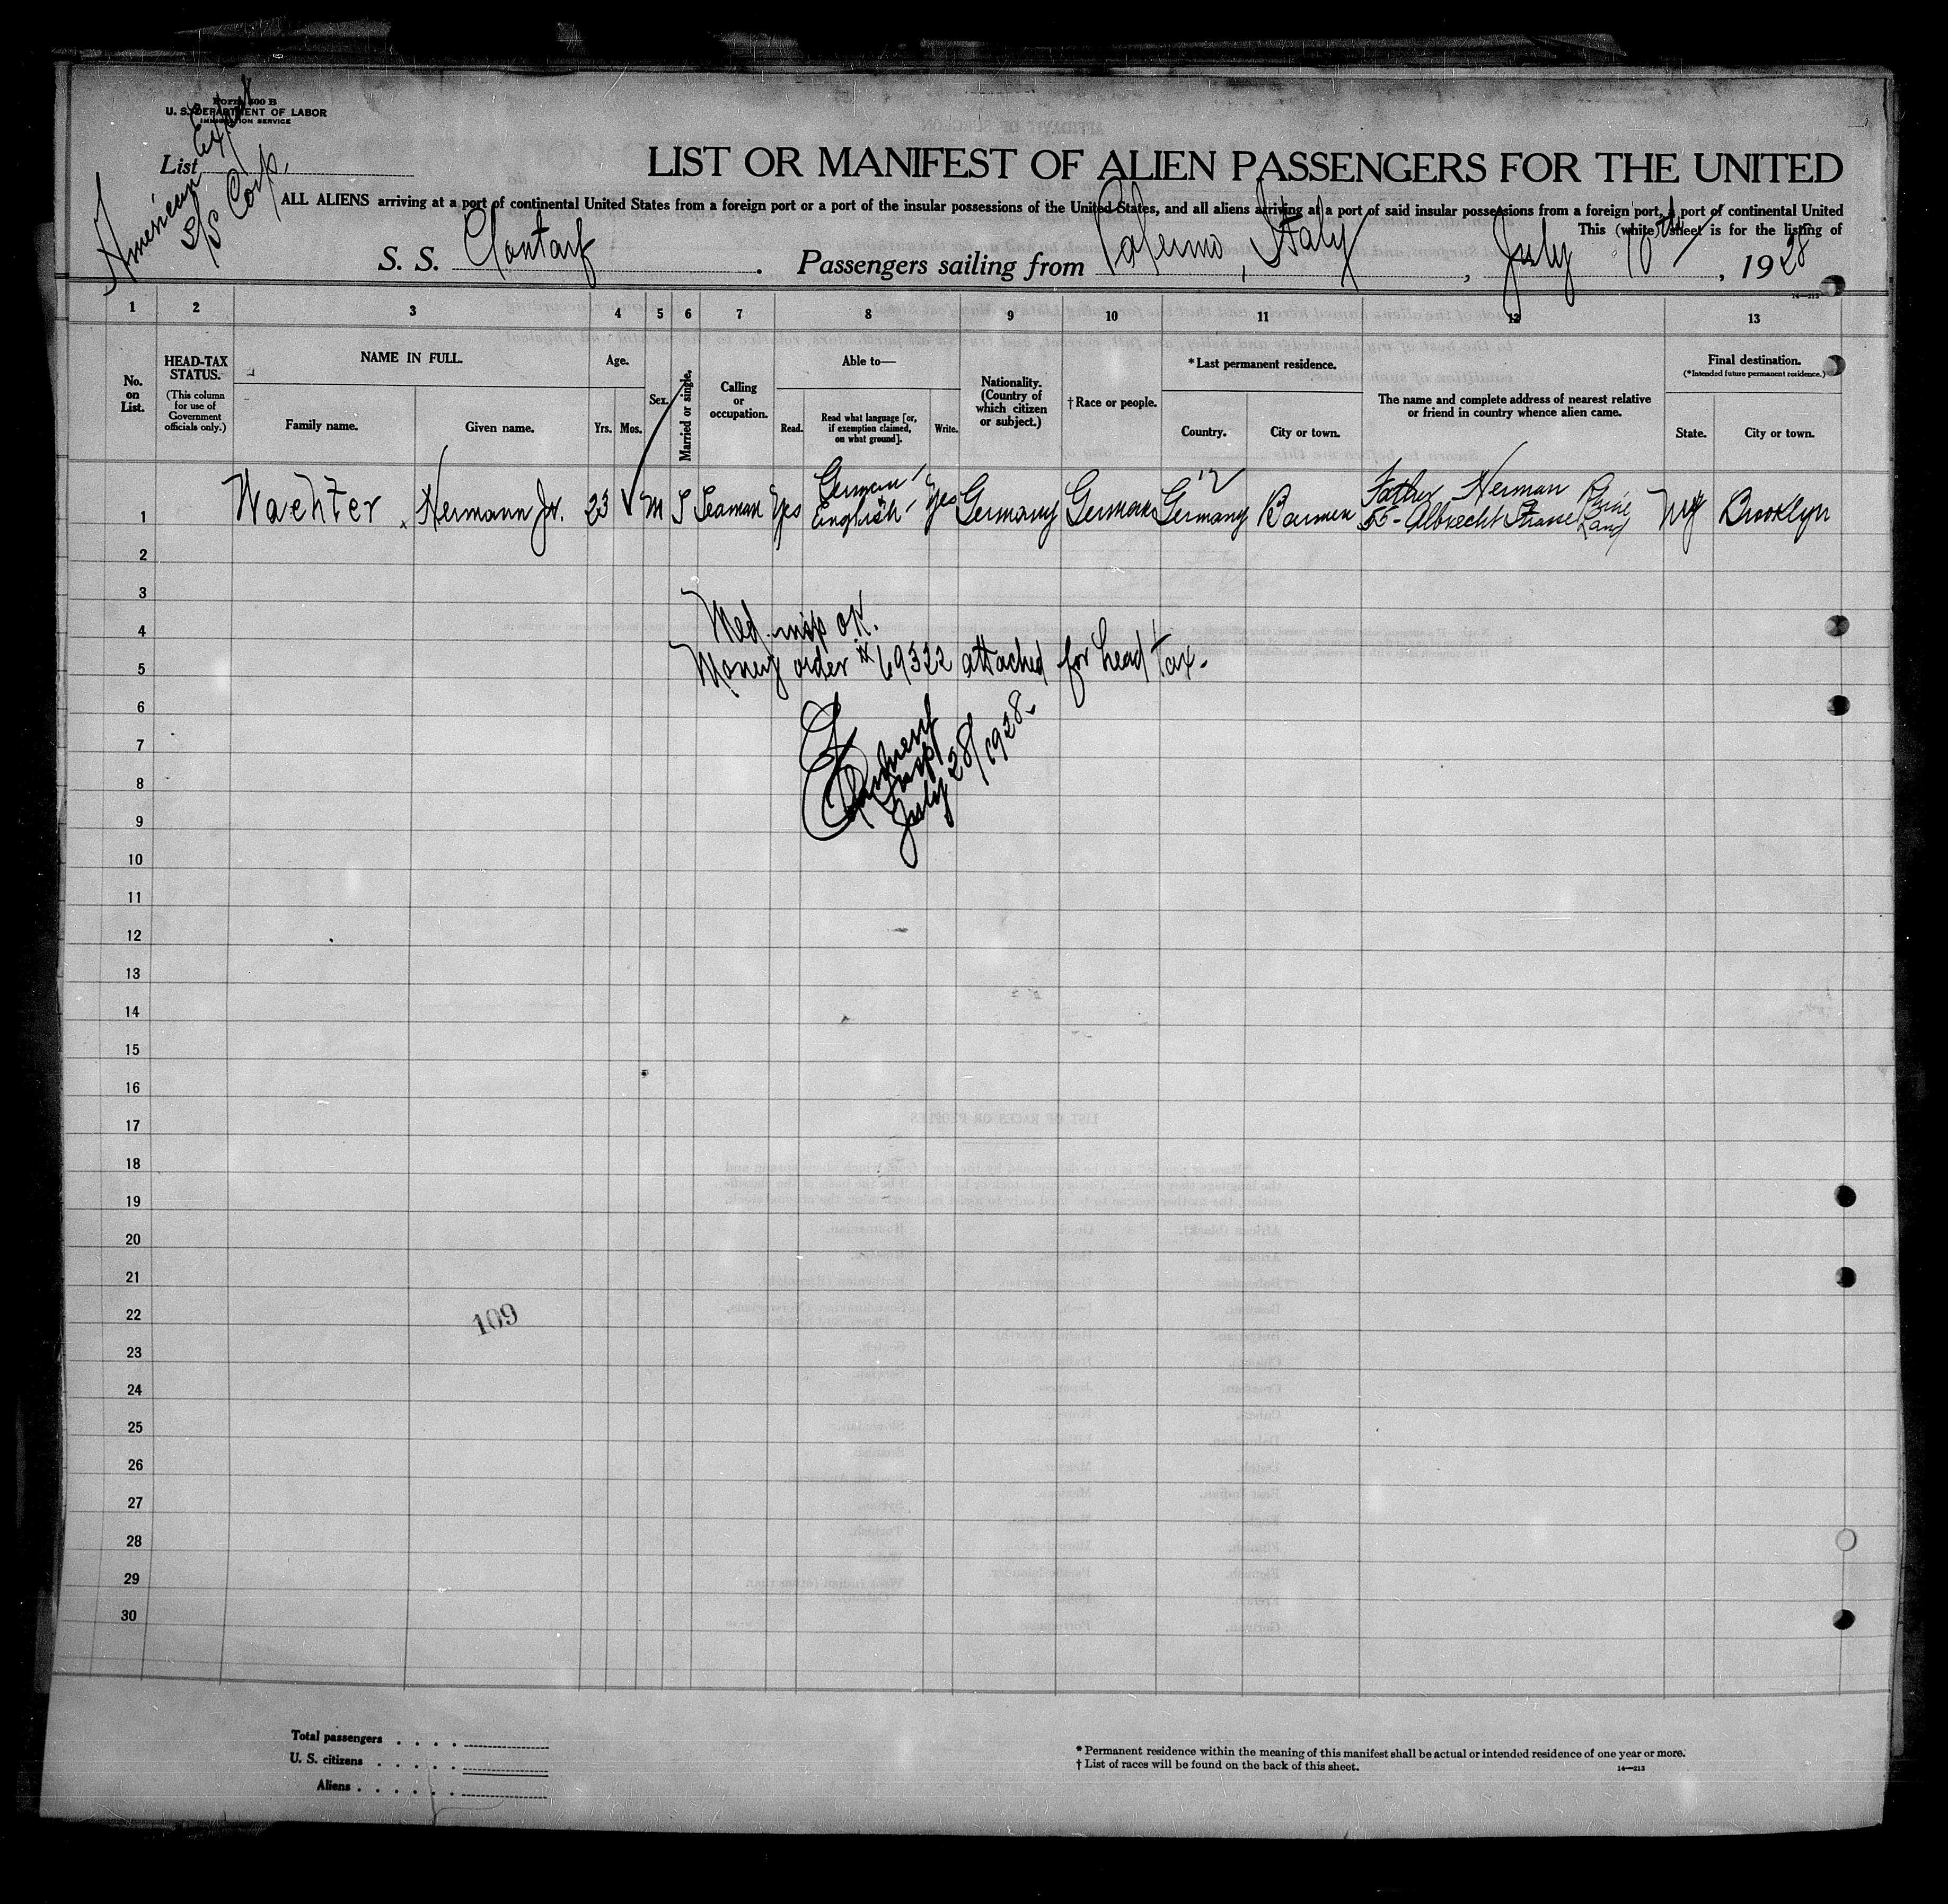 Form 500 B
U. S. DEPARTMENT OF LABOR
IMMIGRATION SERVICE
List
American Export
S/S Corp.
LIST OR MANIFEST OF ALIEN PASSENGERS FOR THE UNITED
ALL ALIENS arriving at a port of continental United States from a foreign port or a port of the insular possessions of the United States, and all aliens arriving at a port of said insular possessions from a foreign port, a port of continental United
This (white) sheet is for the listing of
S. S. Clontarf. Passengers sailing from Palermo, Italy, July 10th, 1928
14—213
1 2 3 4 5 6 7 8 9 10 11 12 13
No. on List.
HEAD-TAX STATUS.
(This column for use of Government officials only.)
NAME IN FULL.
Family name.
Given name.
Age.
Yrs. Mos.
Sex.
Married or single.
Calling or occupation.
Able to—
Read.
Read what language [or, if exemption claimed, on what ground].
Write.
Nationality. (Country of which citizen or subject.)
† Race or people.
*Last permanent residence.
Country.
City or town.
The name and complete address of nearest relative or friend in country whence alien came.
Final destination.
(*Intended future permanent residence.)
State.
City or town.
1 Waehter Hermann Jr. 23 M S Seaman Yes German English Yes Germany German Germany Barmen Father Herman 55- Albrecht Strasse Rhine Land NY Brooklyn
12
2
3
4
5
6
7
8
9
10
11
12
13
14
15
16
17
18
19
20
21
22
23
24
25
26
27
28
29
30
Med. insp OK.
Money order # 69322 attached for head tax.
Insp
July 28/1928.
109
Total passengers
U. S. citizens
Aliens
* Permanent residence within the meaning of this manifest shall be actual or intended residence of one year or more.
† List of races will be found on the back of this sheet.
14—213